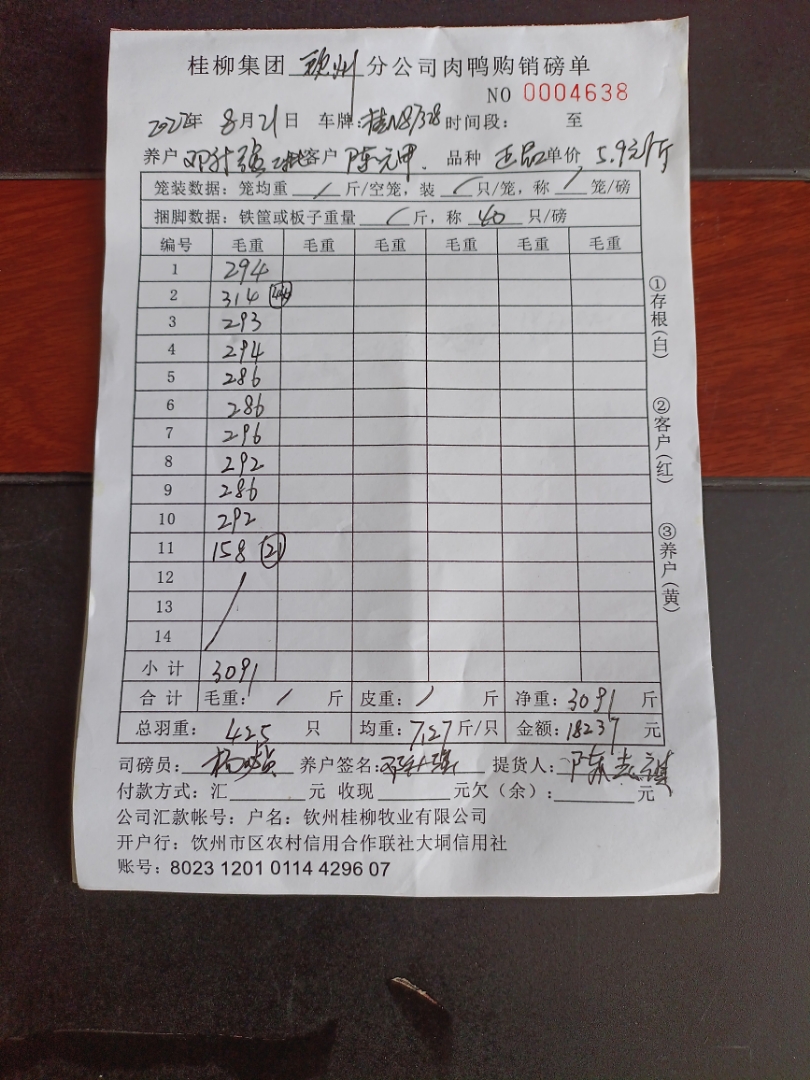 桂柳集团 钦州 分公司肉鸭购销磅单
NO 0004638
2022年 8月21日 车牌:桂N87328 时间段: 至
养户 邓升强 客户 陈元甲 品种 正品 单价 5.9元/斤
笼装数据:笼均重 / 斤/空笼,装 / 只/笼,称 / 笼/磅
捆脚数据:铁筐或板子重量 / 斤,称 40 只/磅
编号 毛重 毛重 毛重 毛重 毛重 毛重
1 294
2 314
3 293
4 294
5 286
6 286
7 296
8 292
9 286
10 292
11 158 (21)
12
13
14
小计 3091
合计 毛重: / 斤 皮重: / 斤 净重:3091 斤
总羽重: 425 只 均重:7.27斤/只 金额:18237 元
司磅员: 养户签名:邓升强 提货人:陈志
付款方式:汇 元 收现 元欠(余): 元
公司汇款帐号:户名:钦州桂柳牧业有限公司
开户行:饮州市区农村信用合作联社大垌信用社
账号:8023 1201 0114 4296 07
①存根(白)
②客户(红)
③养户(黄)